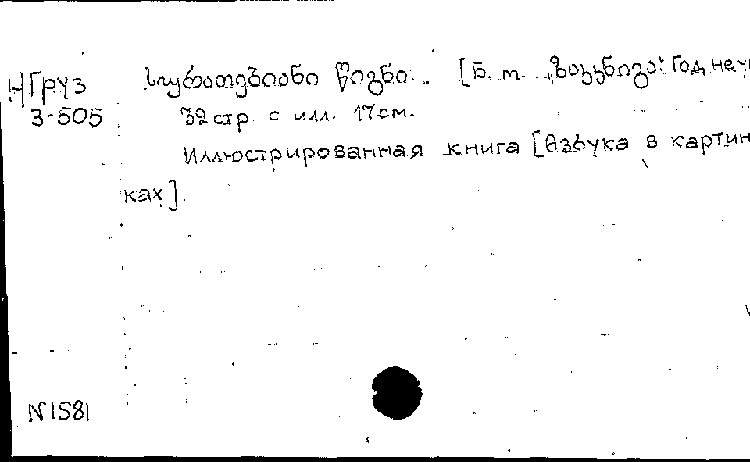 НГруз
3-505
სურათებიანი წიგნი. [Б. т. „ზაკკნიგა“ Год не
32 стр. с илл. 17см.
Иллюстрированная книга [Азбука в картин
ках].
N1581